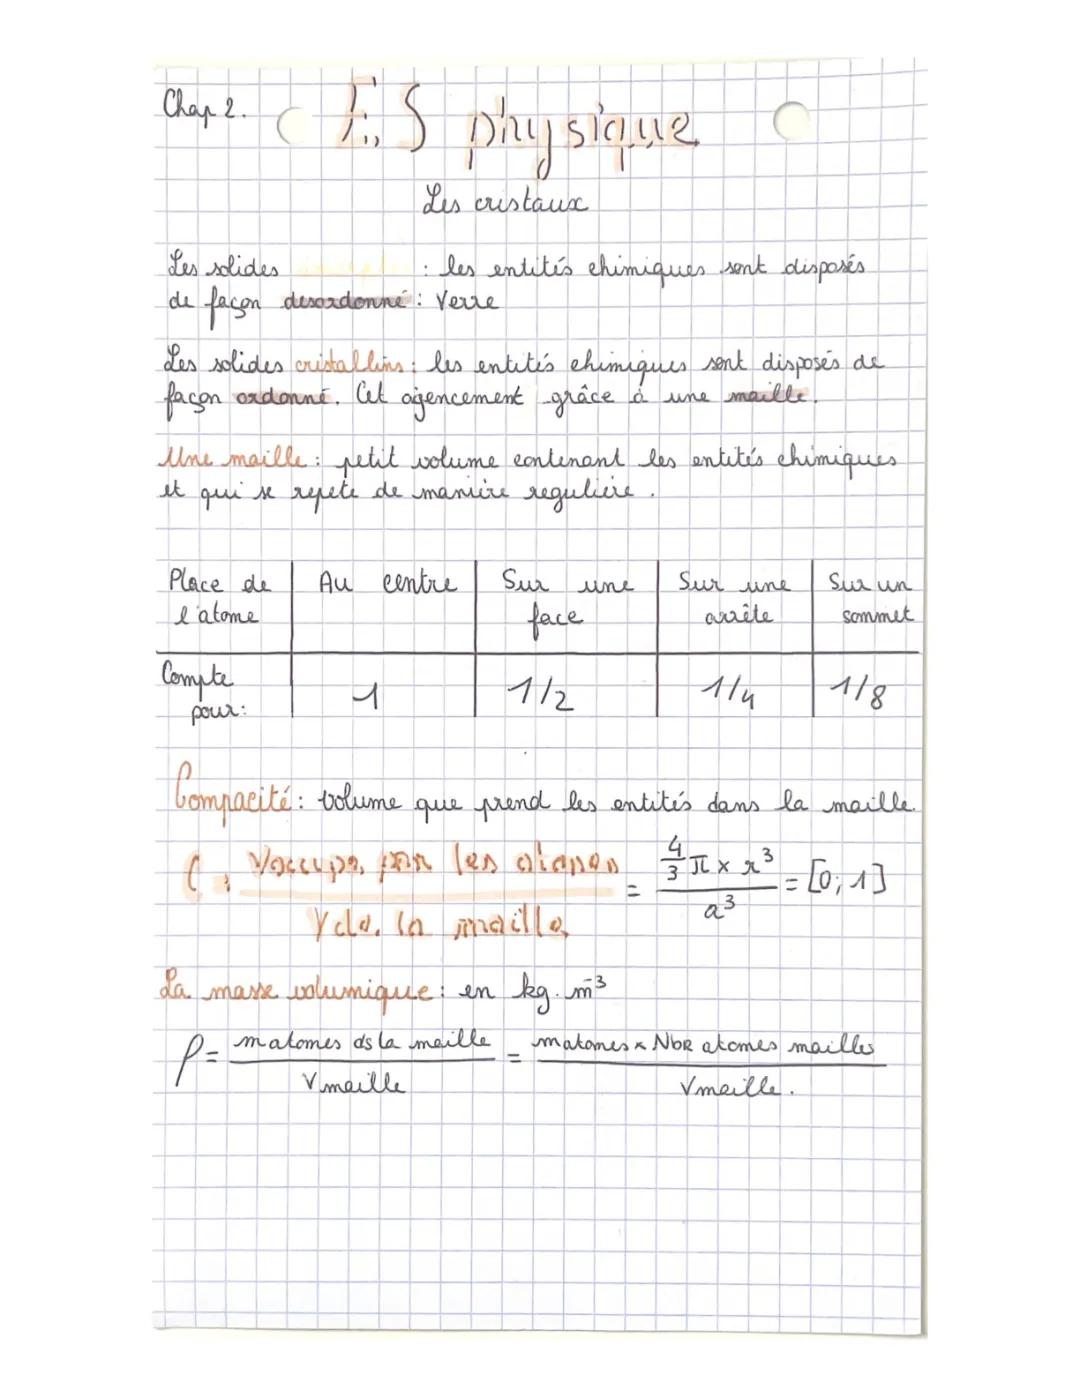 Chap 2.
E.S physique
Les cristaux
Les solides : les entités chimiques sont disposés
de façon desordonné : Verre
Les solides cristallins : les entités chimiques sont disposés de
façon ordonné. Cet agencement grâce à une maille.
Une maille : petit volume contenant les entités chimiques
et qui se repete de manière regulière.
Place de l'atome | Au centre | Sur une face | Sur une arrête | Sur un sommet
Compte pour: | 1 | 1/2 | 1/4 | 1/8
Compacité : volume que prend les entités dans la maille.
C = Voccupé par les atomes / V de la maille = 4/3 π x r³ / a³ = [0; 1]
La masse volumique : en kg. m⁻³
ρ = m atomes ds la maille / V maille = m atomes x Nbr atomes mailles / V maille.